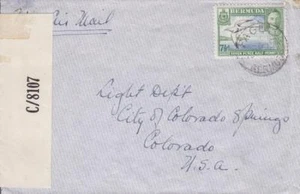 Via Air Mail
BERMUDA
C/8107
Light Dep't
City of Colorado Springs
Colorado
U.S.A.